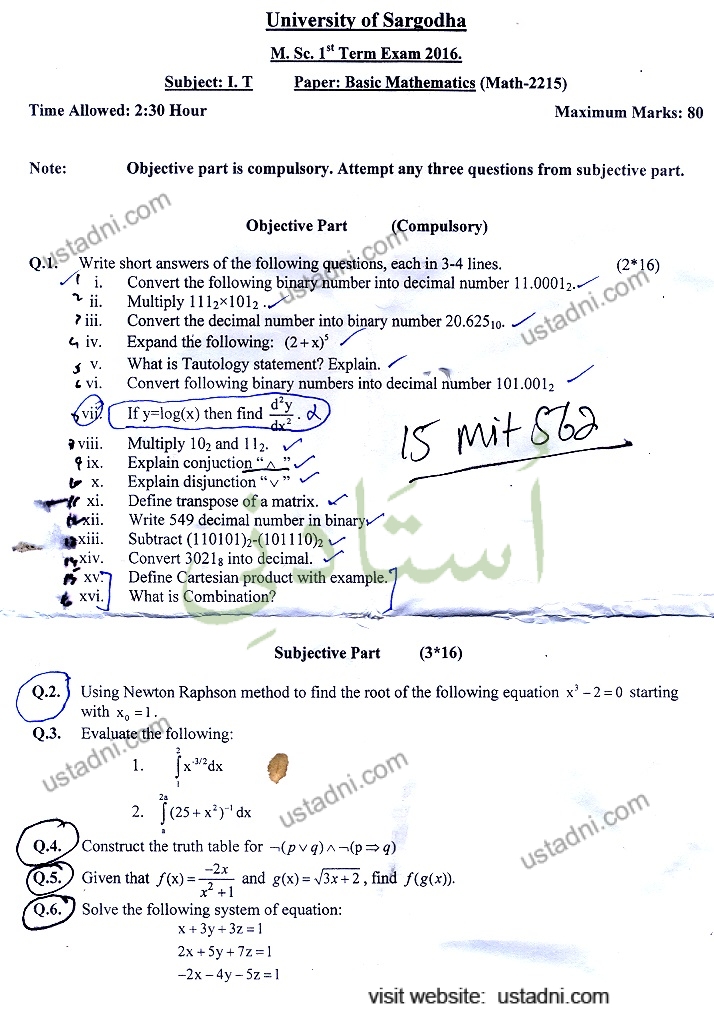 University of Sargodha
M. Sc. 1st Term Exam 2016.
Subject: I. T Paper: Basic Mathematics (Math-2215)
Time Allowed: 2:30 Hour Maximum Marks: 80
Note: Objective part is compulsory. Attempt any three questions from subjective part.
Objective Part (Compulsory)
Q.1. Write short answers of the following questions, each in 3-4 lines. (2*16)
1 i. Convert the following binary number into decimal number 11.0001₂.
2 ii. Multiply 111₂×101₂ .
3 iii. Convert the decimal number into binary number 20.625₁₀.
4 iv. Expand the following: (2+x)⁵
5 v. What is Tautology statement? Explain.
6 vi. Convert following binary numbers into decimal number 101.001₂
vii. If y=log(x) then find d²y/dx² .
viii. Multiply 10₂ and 11₂.
9 ix. Explain conjuction “∧”
x. Explain disjunction “∨”
11 xi. Define transpose of a matrix.
xii. Write 549 decimal number in binary
xiii. Subtract (110101)₂-(101110)₂
xiv. Convert 3021₈ into decimal.
15 xv. Define Cartesian product with example.
xvi. What is Combination?
15 mit 562
أستاذني
Subjective Part (3*16)
Q.2. Using Newton Raphson method to find the root of the following equation x³ − 2 = 0 starting
with x₀ = 1.
Q.3. Evaluate the following:
1. ∫₁² x^-3/2 dx
2. ∫ₐ²ᵃ (25 + x²)⁻¹ dx
Q.4. Construct the truth table for ¬(p ∨ q) ∧ ¬(p ⇒ q)
Q.5. Given that f(x) = −2x/(x² + 1) and g(x) = √(3x + 2), find f(g(x)).
Q.6. Solve the following system of equation:
x + 3y + 3z = 1
2x + 5y + 7z = 1
−2x − 4y − 5z = 1
ustadni.com
ustadni.com
ustadni.com
ustadni.com
ustadni.com
ustadni.com
visit website: ustadni.com